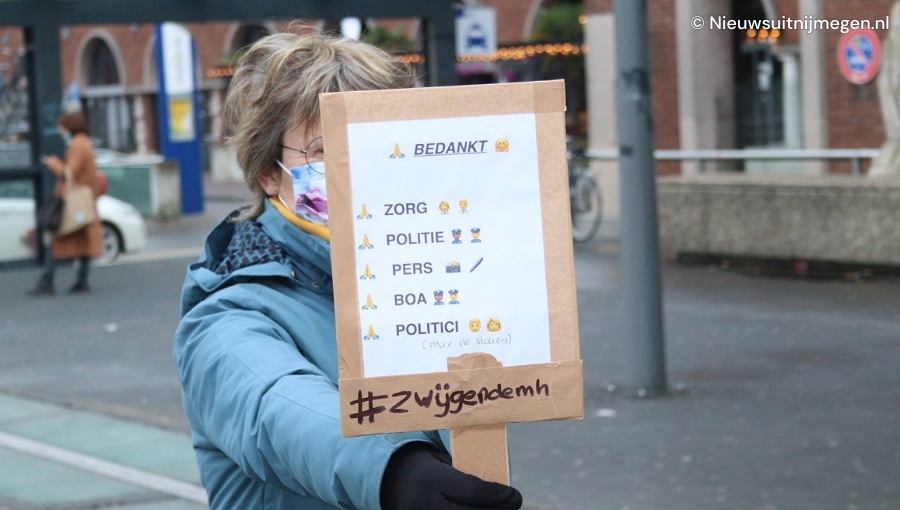 © Nieuwsuitnijmegen.nl
🙏 BEDANKT 🤗
🙏 ZORG
🙏 POLITIE
🙏 PERS 📸 🖊
🙏 BOA
🙏 POLITICI
de
#zwijgendemh